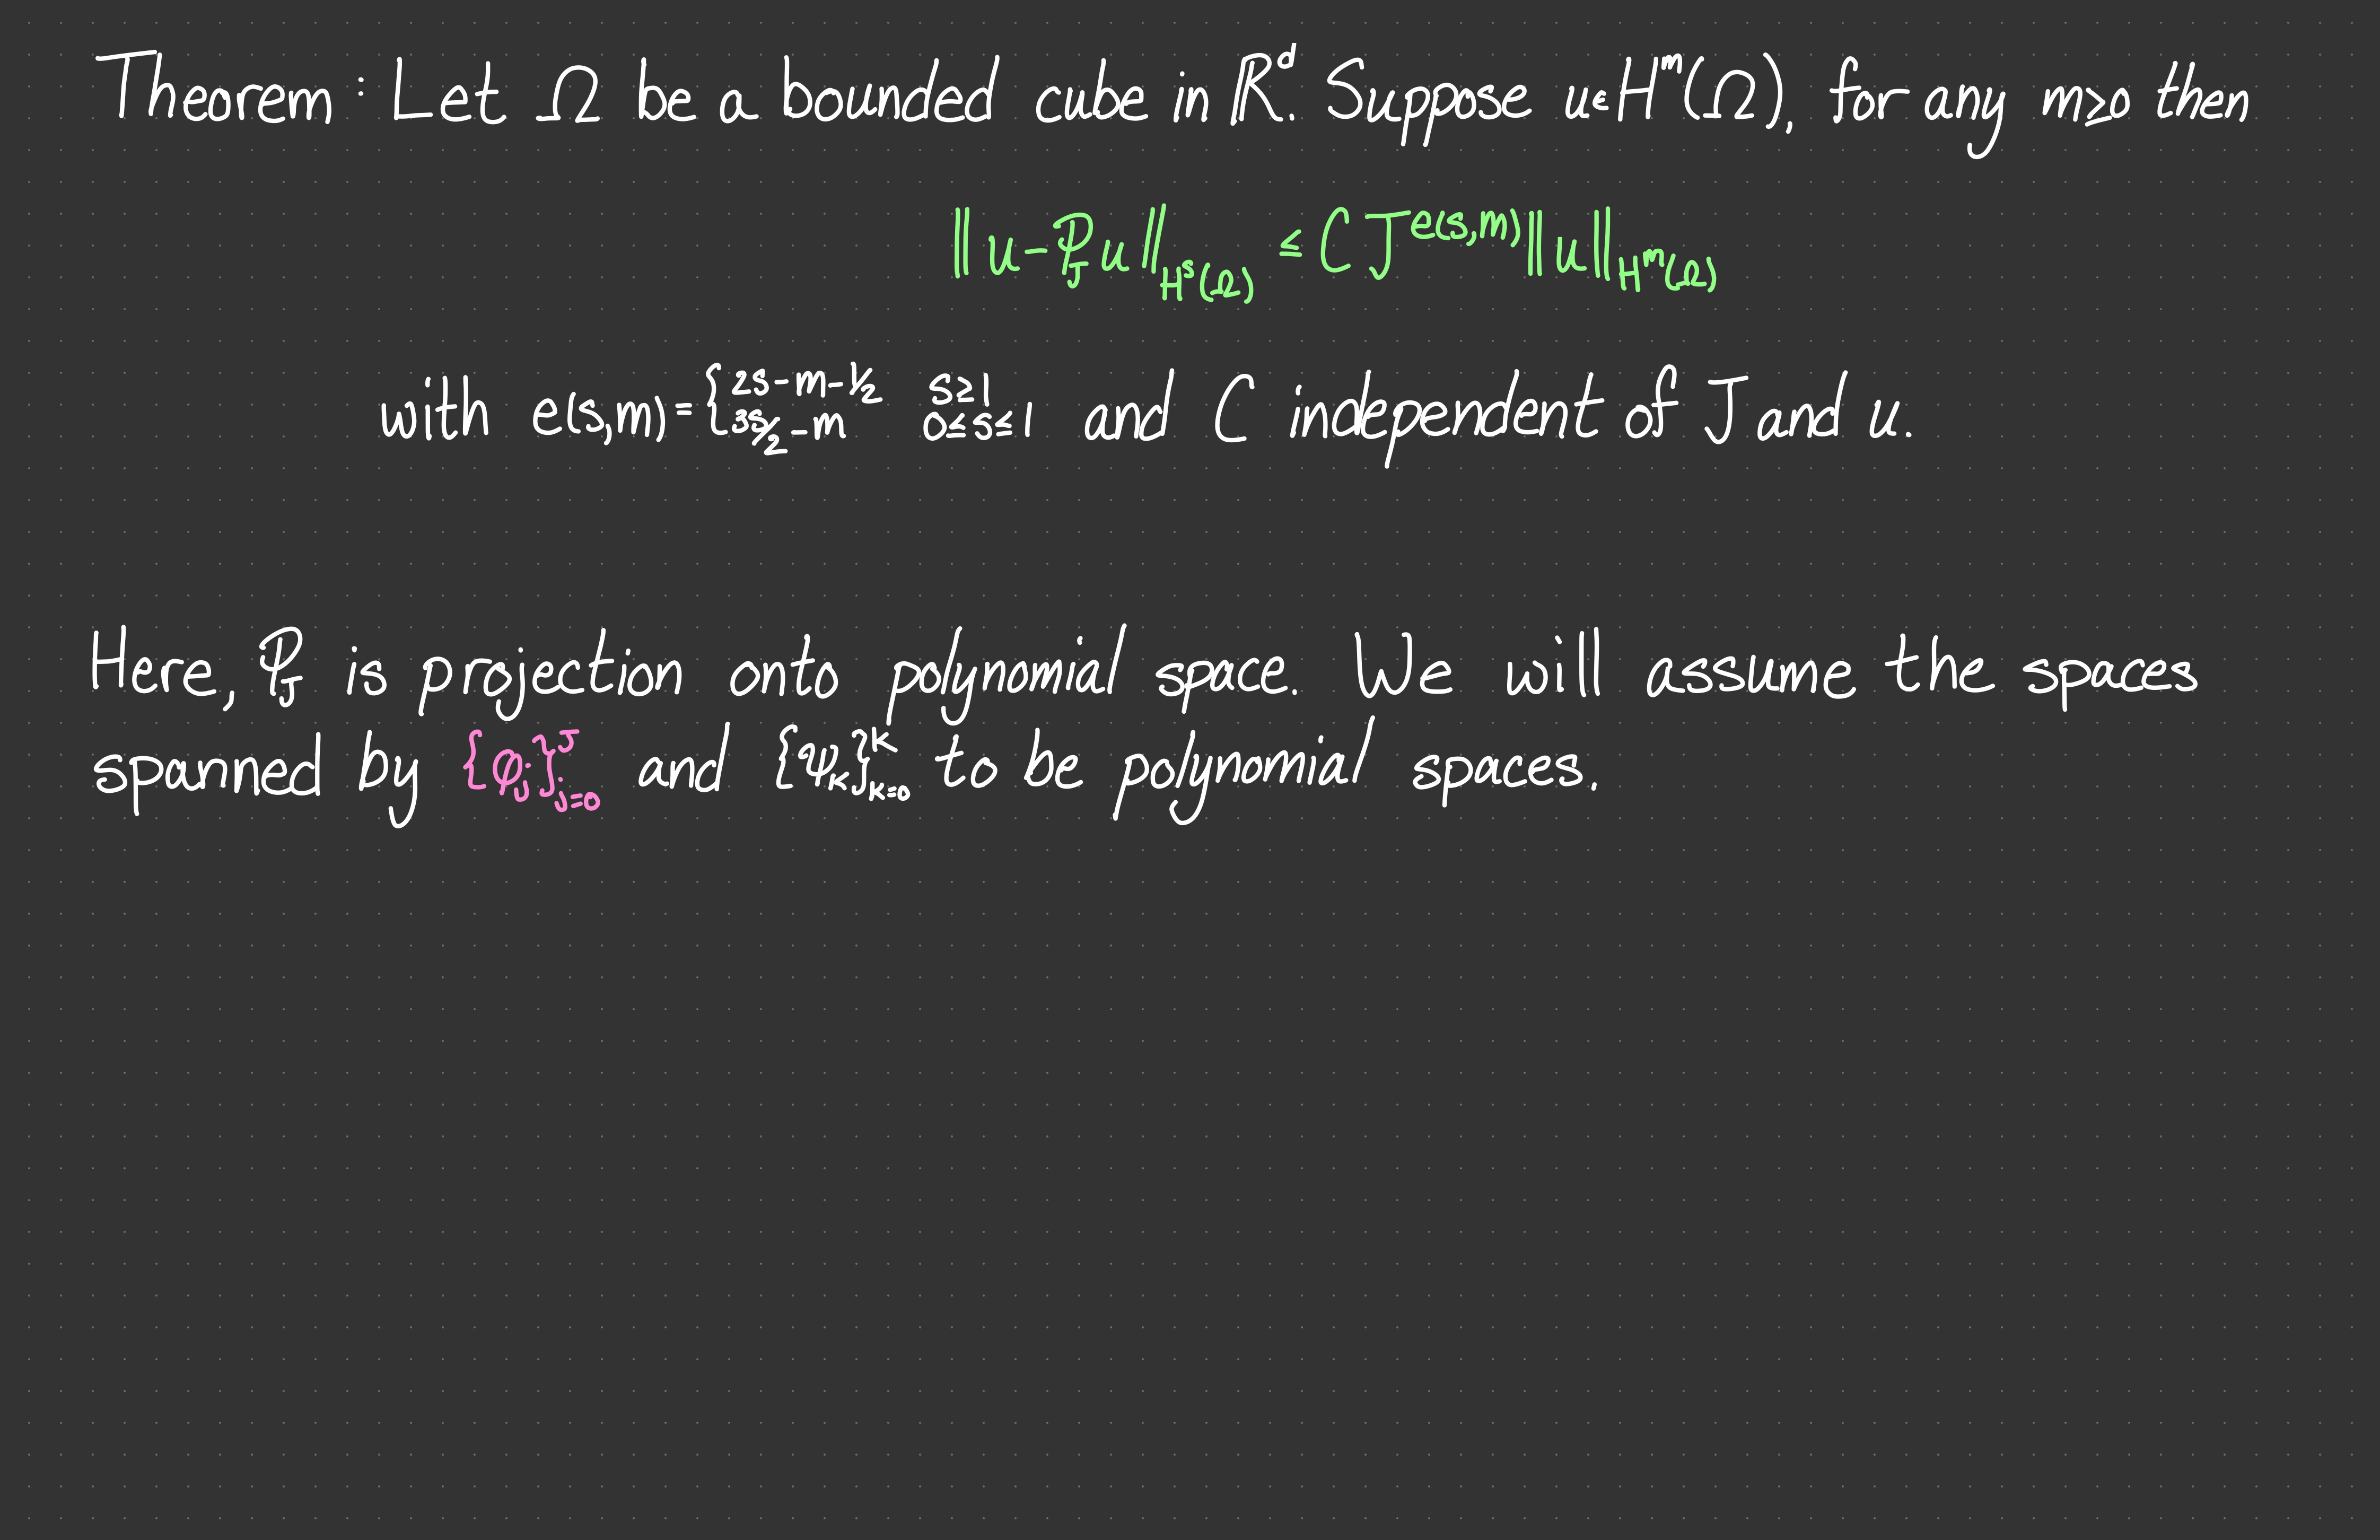 Theorem: Let Ω be a bounded cube in ℝᵈ. Suppose u∈Hᵐ(Ω), for any m≥0 then
‖u-𝒫_J u‖_{Hˢ(Ω)} ≤ C J^{e(s,m)}‖u‖_{Hᵐ(Ω)}
with e(s,m)={2s-m-½ s≥1 and C independent of J and u.
3s/2-m 0≤s≤1
Here, 𝒫_J is projection onto polynomial space. We will assume the spaces
spanned by {φ_j}_{j=0}^J and {Ψ_k}_{k=0}^K to be polynomial spaces.